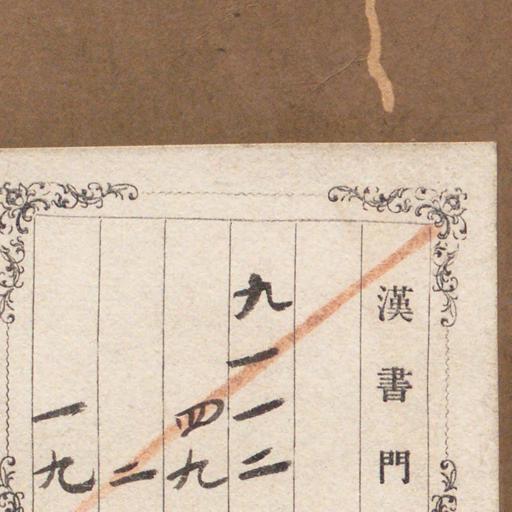 漢書門
九一一二
四九
二
一九